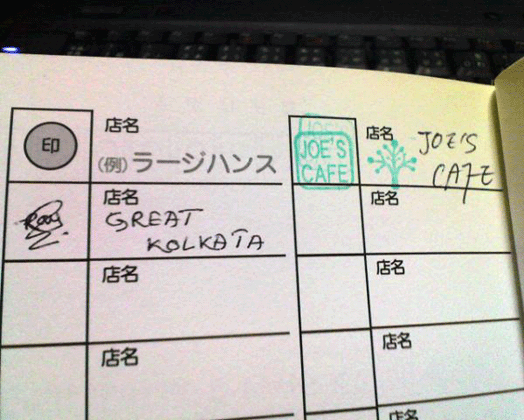 印
店名
(例)ラージハンス
店名
GREAT
KOLKATA
店名
店名
JOE'S
CAFE
店名
JOE'S
CAFE
店名
店名
店名
店名